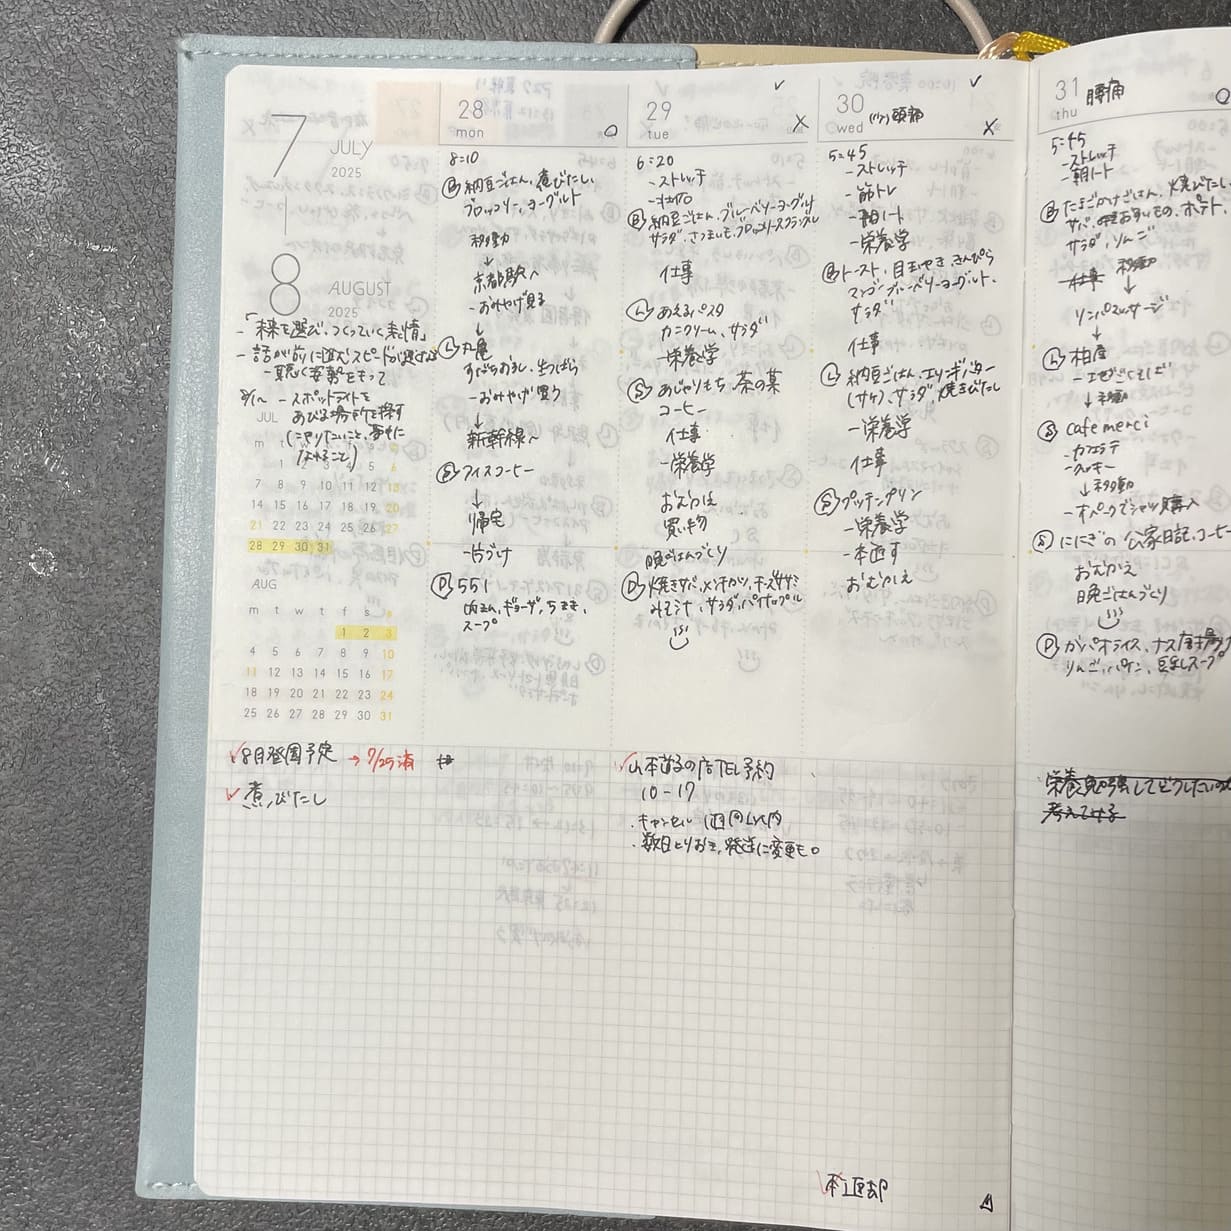 7
JULY
2025
8
AUGUST
2025
-「未来を選び、つくっていく表情」
- 話が前に進むスピードが速すぎる
- 聴く姿勢をもって
8/1〜 - スポットライトを
あびる場所を探す
(=やりたいこと、夢中に
なれること)
JUL
m t w t f s s
1 2 3 4 5 6
7 8 9 10 11 12 13
14 15 16 17 18 19 20
21 22 23 24 25 26 27
28 29 30 31
AUG
m t w t f s s
1 2 3
4 5 6 7 8 9 10
11 12 13 14 15 16 17
18 19 20 21 22 23 24
25 26 27 28 29 30 31
✓8月登園予定 → 7/25済
✓ 煮びたし
28
mon
○
8:10
Ⓑ納豆ごはん、煮びたし、
ブロッコリー、ヨーグルト
移動
↓
京都駅へ
- おみやげ見る
↓
Ⓛ丸亀
すだちおろし
- おみやげ買う
↓
新幹線へ
Ⓢアイスコーヒー
↓
帰宅
- 片づけ
Ⓓ551
肉まん、ギョーザ、ちまき、
スープ
✓
29
tue
X
6:20
- ストレッチ
Ⓑ納豆ごはん、ブルーベリーヨーグルト
サラダ、さつまいも、ブロッコリースクランブル
仕事
Ⓛあえるパスタ
カニクリーム、サラダ
- 栄養学
Ⓢあじゃりもち、茶の菓
コーヒー
仕事
- 栄養学
おむかえ
買い物
晩ごはんづくり
Ⓓ焼きサバ、メンチカツ、チーズササミ
みそ汁、サラダ、パイナップル
✓山本道子の店TEL予約
10-17
・キャンセル 1週間以内
・数日とりおき、発送に変更も○
✓
30
wed
頭痛
X
5:45
- ストレッチ
- 筋トレ
- 朝ノート
- 栄養学
Ⓑトースト、目玉やき、きんぴら
マンゴーブルーベリーヨーグルト、
サラダ
仕事
Ⓛ納豆ごはん、エリンギバター
(サケ)、サラダ、焼きびたし
- 栄養学
仕事
Ⓢプッチンプリン
- 栄養学
- 本返す
おむかえ
本返却
31
thu
腰痛
○
5:45
- ストレッチ
- 朝ノート
Ⓑたまごかけごはん、焼びたし、
サラダ、りんご
仕事 移動
↓
リンパマッサージ
↓
Ⓛ柏屋
↓ 移動
Ⓢcafe merci
- カフェラテ
- クッキー
↓移動
- オペークでシャツ購入
Ⓢににぎの公家日記、コーヒー
おむかえ
晩ごはんづくり
Ⓓガパオライス、ナス
りんご、パイン、豆乳スープ
栄養勉強してどうしたいのか
考えてみる